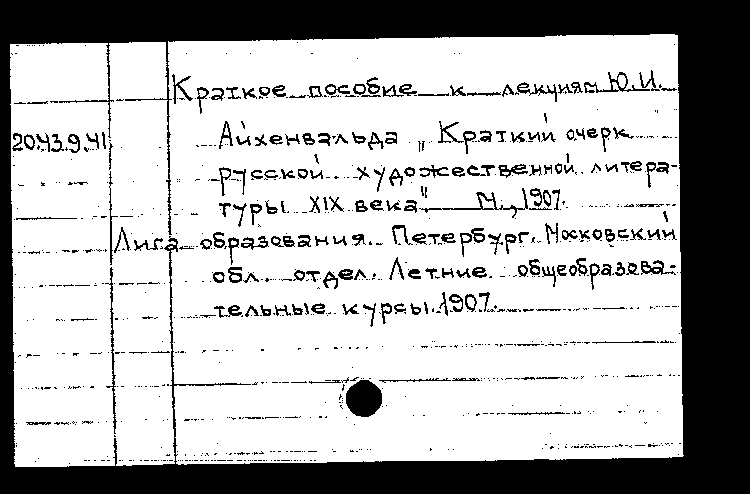 Краткое пособие к лекциям Ю.И.
20.43.9.41
Айхенвальда „Краткий очерк
русской художественной литера-
туры XIX века". М., 1907.
Лига образования. Петербург. Московский
обл. отдел. Летние общеобразова-
тельные курсы. 1907.